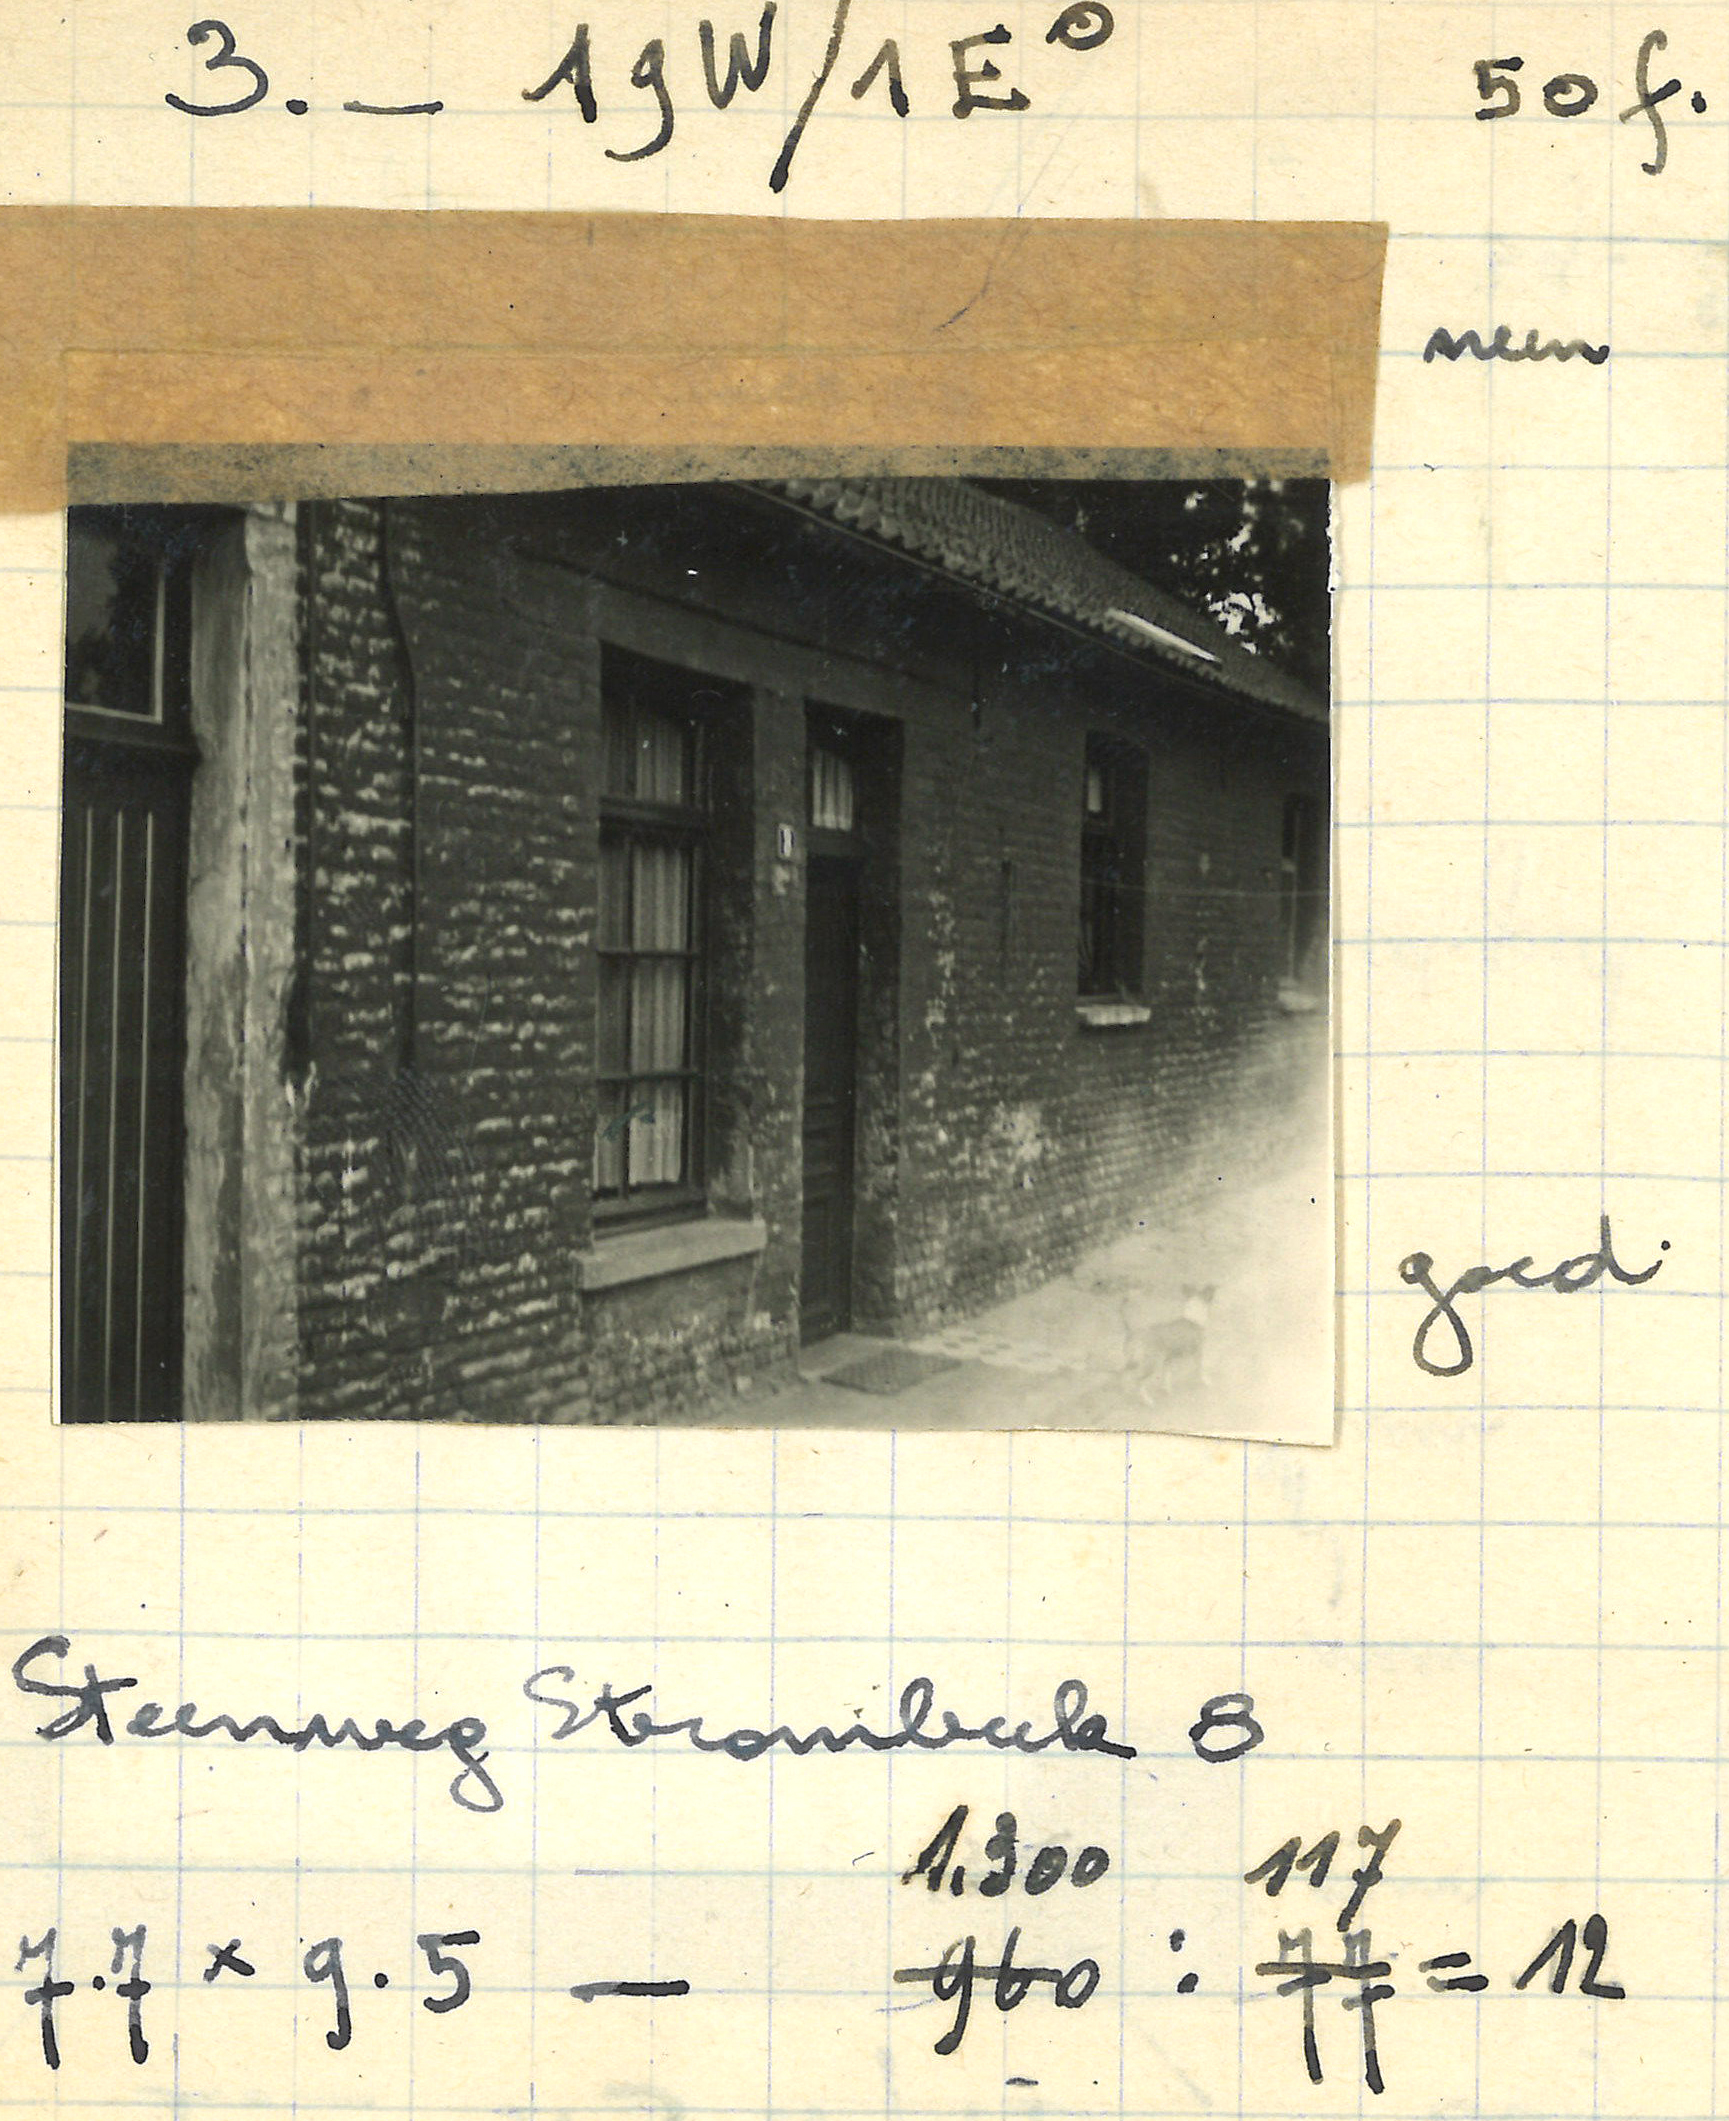 3. — 1gW/1E° 50 f.
neen
goed.
Steenweg Strombeek 8
1.300 117
7.7 × 9.5 — 960 : 77 = 12